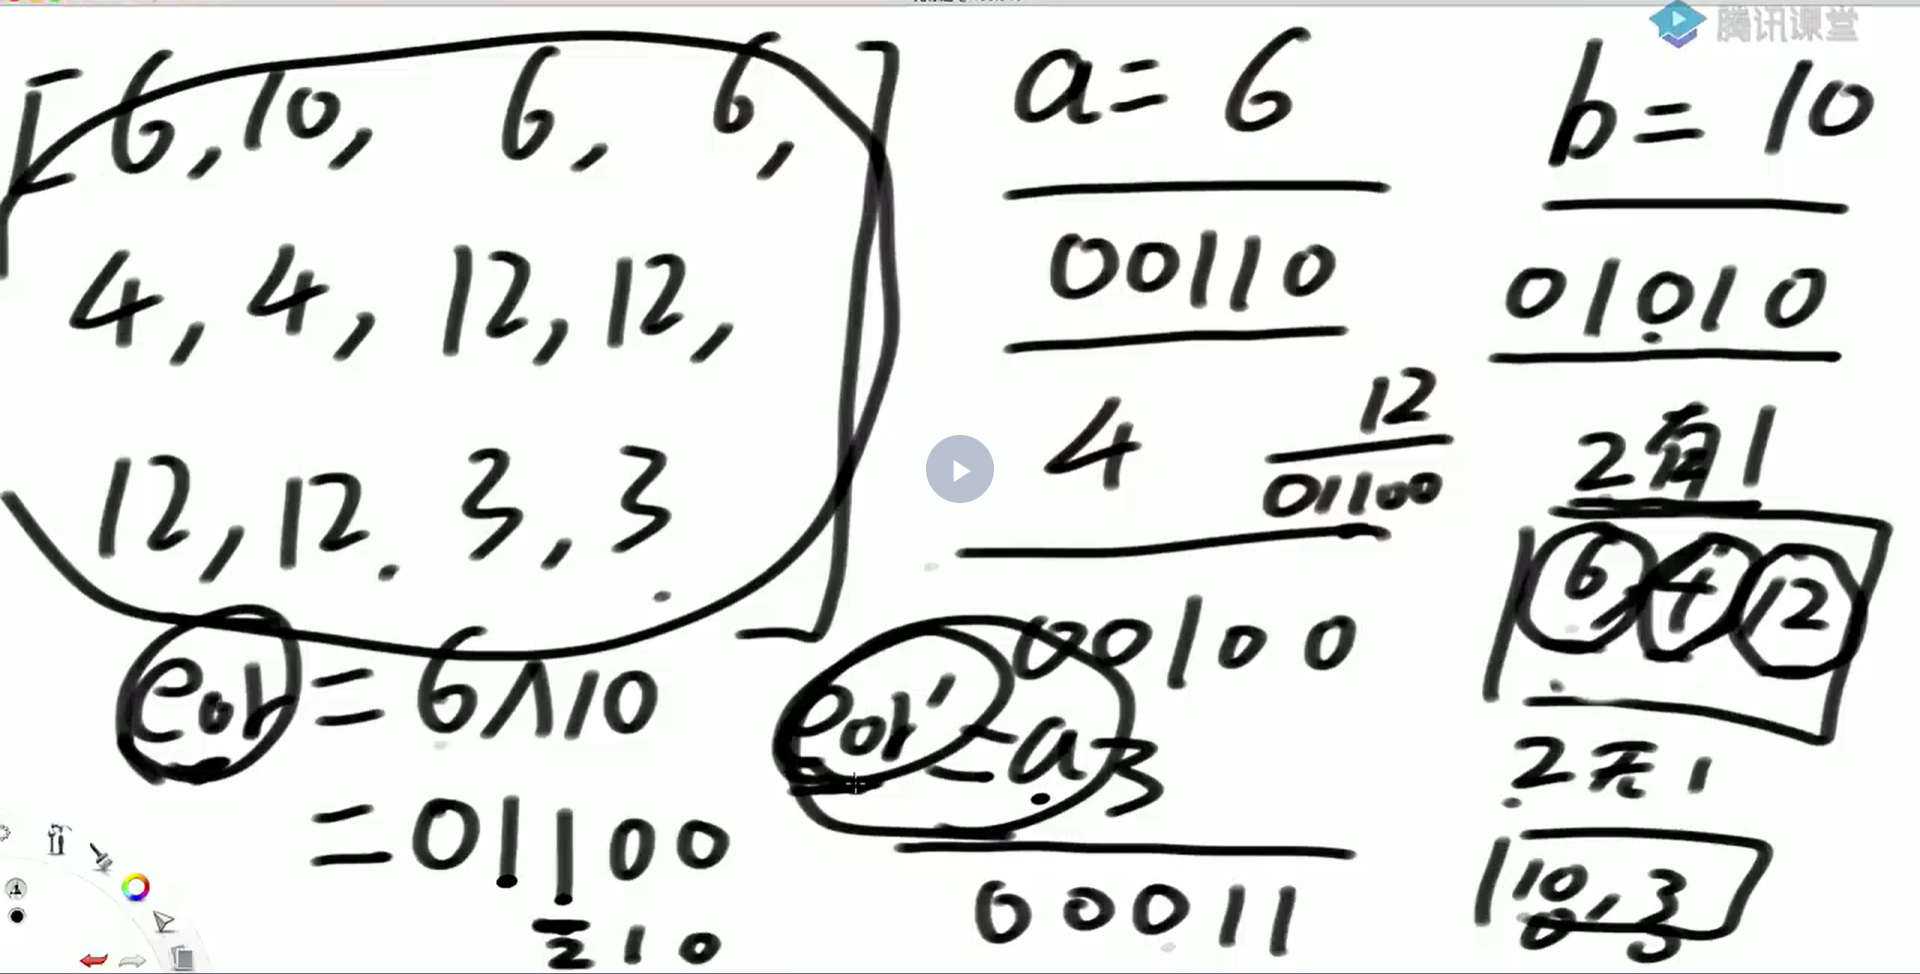 腾讯课堂
[6, 10, 6, 6,
4, 4, 12, 12,
12, 12. 3, 3]
eor = 6∧10
= 01100
2 1 0
a = 6
00110
4
12
01100
00100
eor' = a
3
00011
b = 10
01010
2有1
6, 4, 12
2无1
10, 3